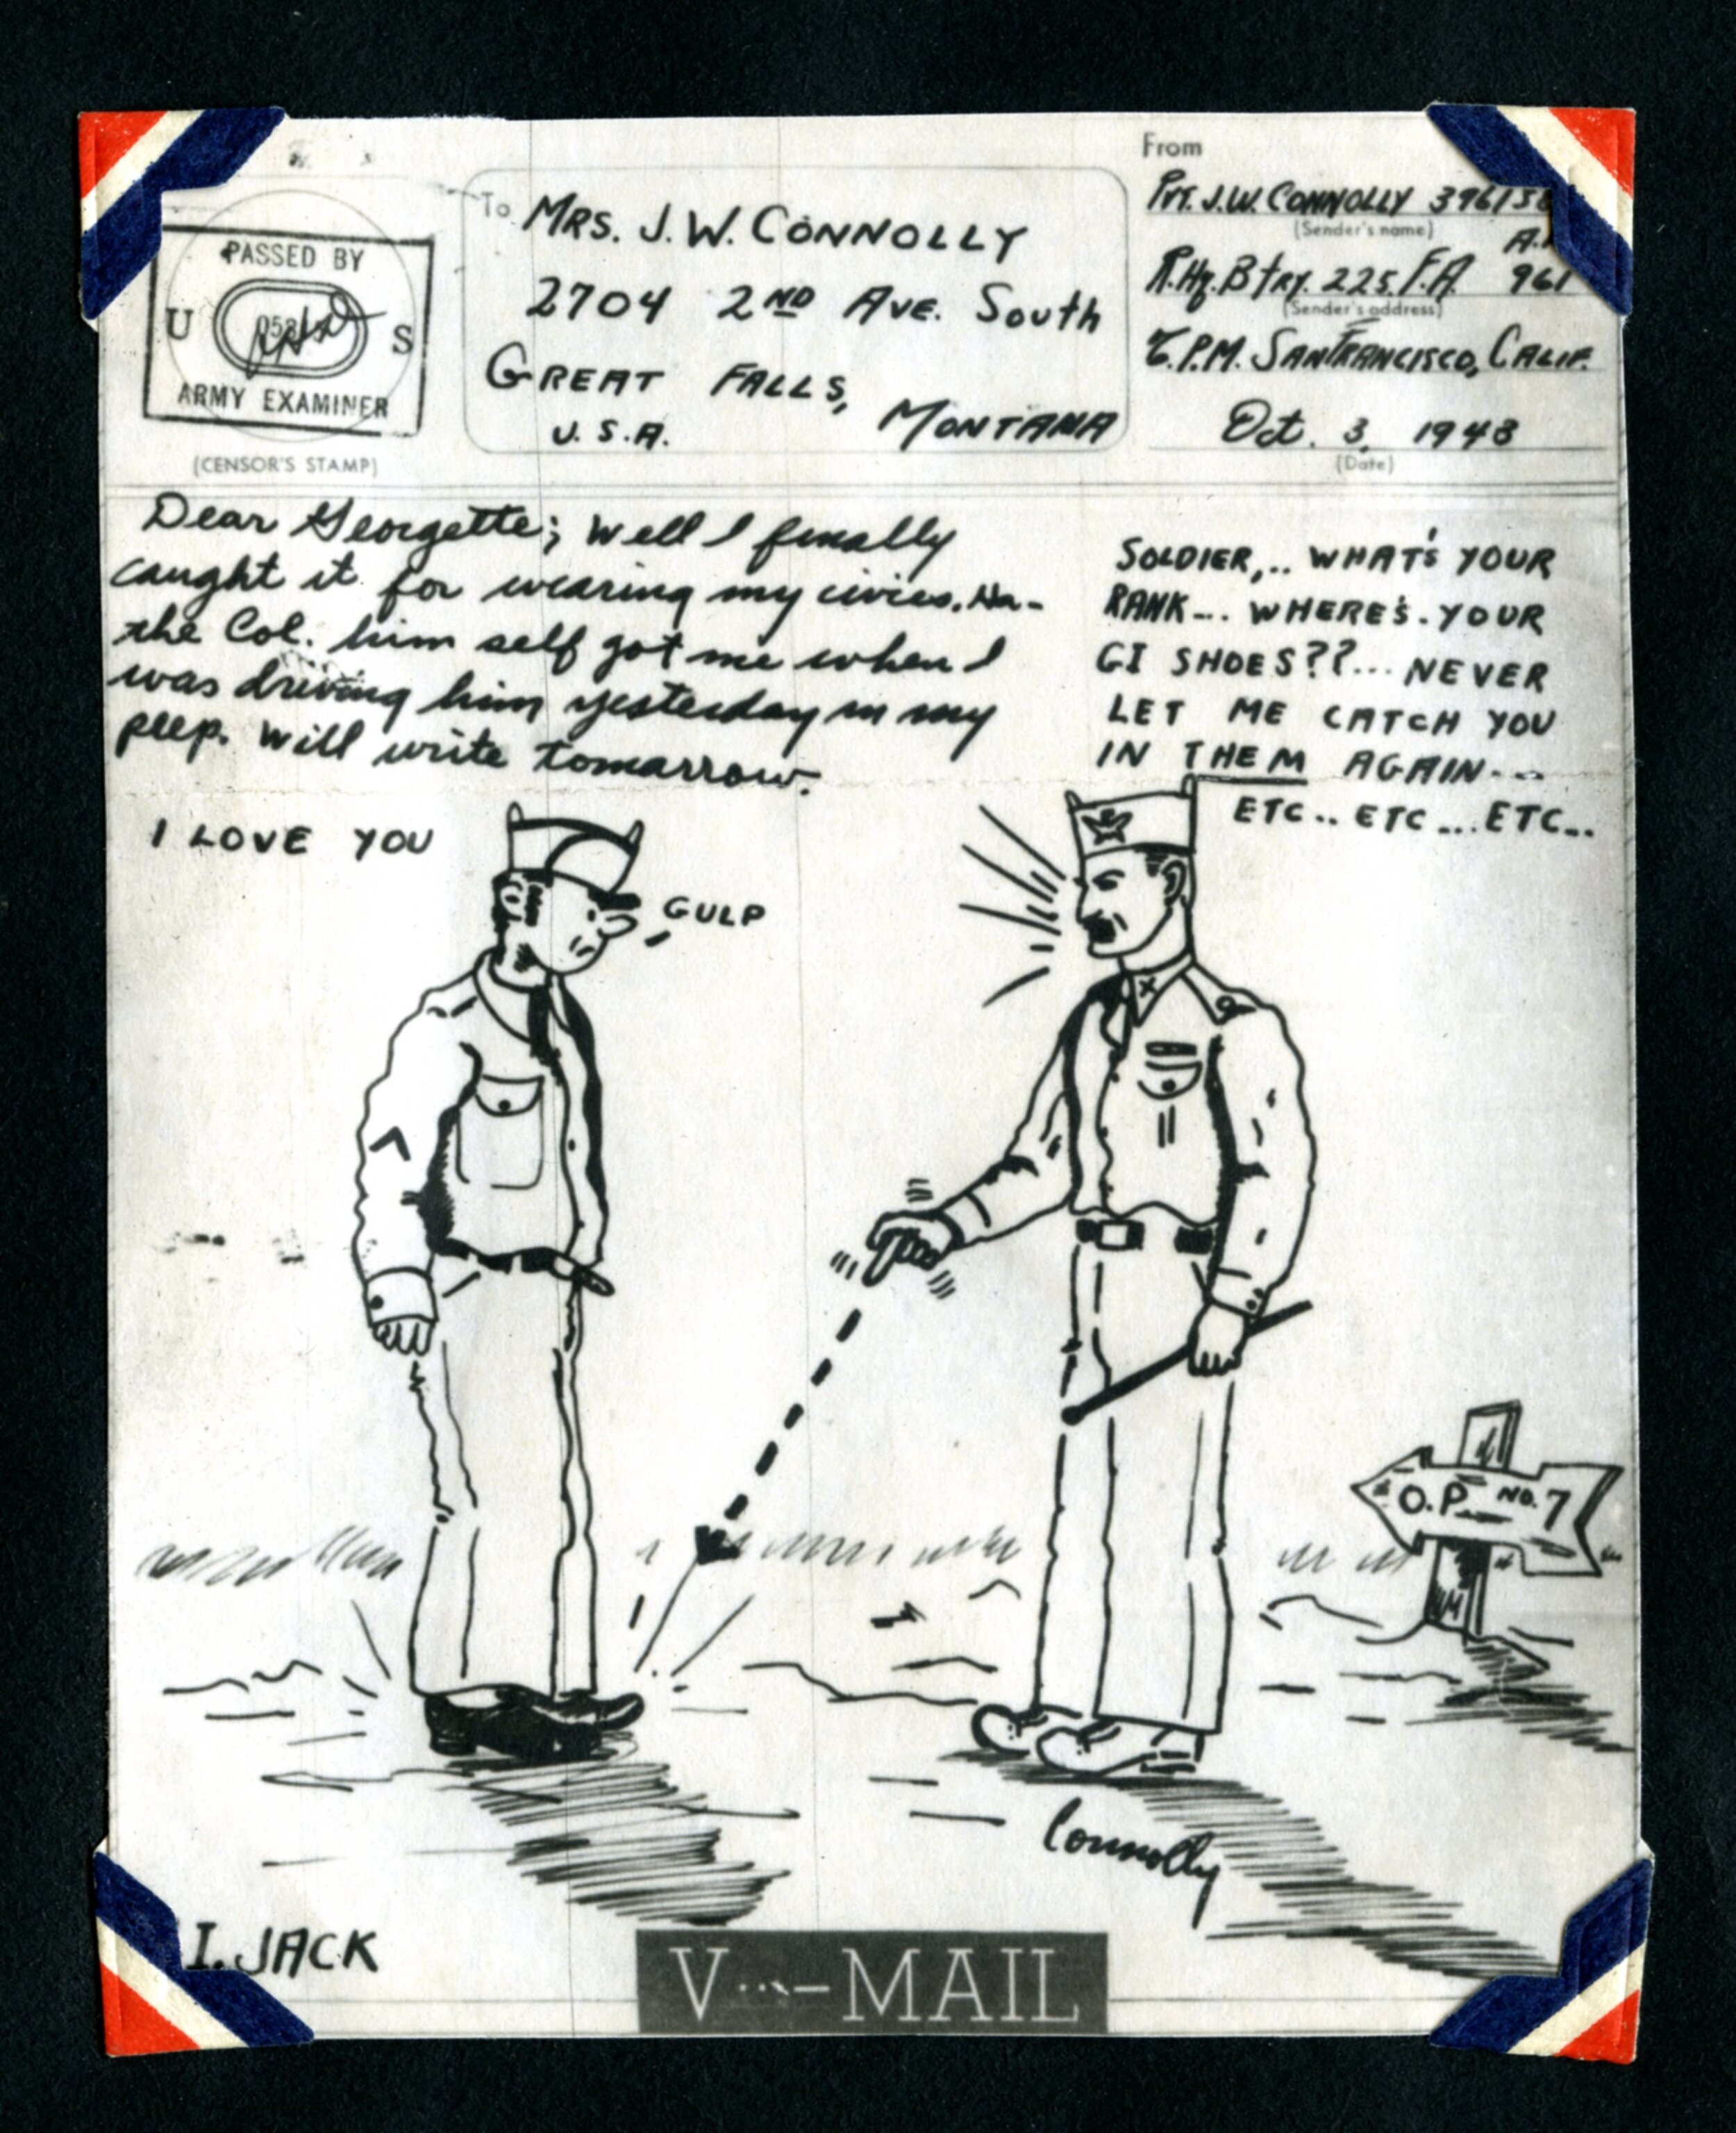 PASSED BY
U S
ARMY EXAMINER
(CENSOR'S STAMP)
To
MRS. J. W. CONNOLLY
2704 2ND AVE. SOUTH
GREAT FALLS,
MONTANA
U.S.A.
From
PVT. J.W. CONNOLLY 39615
(Sender's name)
Btry. 225. F.A. 961
(Sender's address)
SAN FRANCISCO, CALIF.
Oct. 3, 1943
(Date)
Dear Georgette; Well I finally
caught it for wearing my civies. Ha-
the Col. him self got me when I
was driving him yesterday in my
peep. Will write tomarrow.
I LOVE YOU
SOLDIER,.. WHAT'S YOUR
RANK... WHERE'S. YOUR
GI SHOES??... NEVER
LET ME CATCH YOU
IN THEM AGAIN...
ETC.. ETC... ETC..
GULP
O.P. NO. 7
Connolly
I. JACK
V...-MAIL